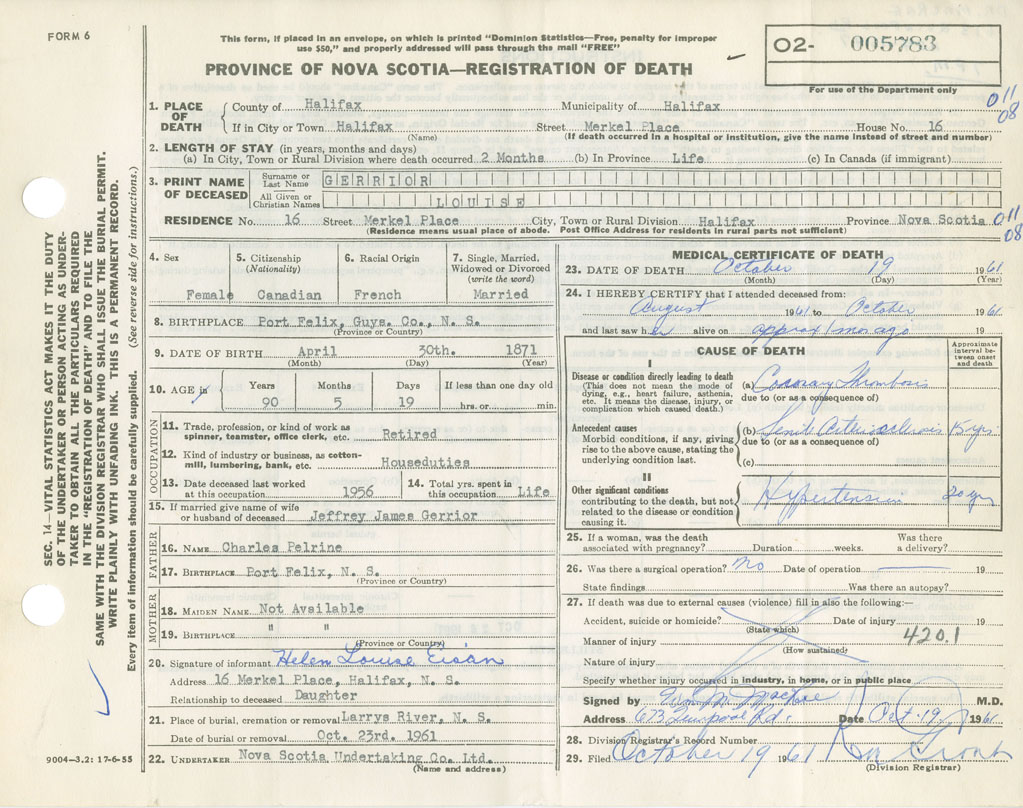 FORM 6
This form, if placed in an envelope, on which is printed "Dominion Statistics—Free, penalty for improper
use $50," and properly addressed will pass through the mail "FREE"
PROVINCE OF NOVA SCOTIA—REGISTRATION OF DEATH
O2- 005783
For use of the Department only
SEC. 14—VITAL STATISTICS ACT MAKES IT THE DUTY
OF THE UNDERTAKER OR PERSON ACTING AS UNDER-
TAKER TO OBTAIN ALL THE PARTICULARS REQUIRED
IN THE "REGISTRATION OF DEATH" AND TO FILE THE
SAME WITH THE DIVISION REGISTRAR WHO SHALL ISSUE THE BURIAL PERMIT.
WRITE PLAINLY WITH UNFADING INK. THIS IS A PERMANENT RECORD.
Every item of information should be carefully supplied. (See reverse side for instructions.)
1. PLACE OF DEATH
County of Halifax Municipality of Halifax
011
08
If in City or Town Halifax Street Merkel Place House No. 16
(Name) (If death occurred in a hospital or institution, give the name instead of street and number)
2. LENGTH OF STAY (in years, months and days)
(a) In City, Town or Rural Division where death occurred 2 Months (b) In Province Life (c) In Canada (if immigrant)
3. PRINT NAME OF DECEASED
Surname or Last Name GERRIOR
All Given or Christian Names LOUISE
RESIDENCE No. 16 Street Merkel Place City, Town or Rural Division Halifax Province Nova Scotia
011
08
(Residence means usual place of abode. Post Office Address for residents in rural parts not sufficient)
4. Sex
Female
5. Citizenship
(Nationality)
Canadian
6. Racial Origin
French
7. Single, Married,
Widowed or Divorced
(write the word)
Married
8. BIRTHPLACE Port Felix, Guys. Co., N. S.
(Province or Country)
9. DATE OF BIRTH April 30th. 1871
(Month) (Day) (Year)
10. AGE Years Months Days If less than one day old
90 5 19 hrs. or min.
OCCUPATION
11. Trade, profession, or kind of work as
spinner, teamster, office clerk, etc. Retired
12. Kind of industry or business, as cotton-
mill, lumbering, bank, etc. Houseduties
13. Date deceased last worked
at this occupation 1956
14. Total yrs. spent in
this occupation Life
15. If married give name of wife
or husband of deceased Jeffrey James Gerrior
FATHER
16. NAME Charles Pelrine
17. BIRTHPLACE Port Felix, N. S.
(Province or Country)
MOTHER
18. MAIDEN NAME Not Available
19. BIRTHPLACE " "
(Province or Country)
20. Signature of informant Helen Louise
Address 16 Merkel Place, Halifax, N. S.
Relationship to deceased Daughter
21. Place of burial, cremation or removal Larrys River, N. S.
Date of burial or removal Oct. 23rd. 1961
22. UNDERTAKER Nova Scotia Undertaking Co. Ltd.
(Name and address)
9004—3.2: 17-6-55
MEDICAL CERTIFICATE OF DEATH
23. DATE OF DEATH October 19 1961
(Month) (Day) (Year)
24. I HEREBY CERTIFY that I attended deceased from:
August 1961 to October 1961
and last saw her alive on approx 1 mo ago 19
CAUSE OF DEATH
Approximate interval between onset and death
I
Disease or condition directly leading to death
(This does not mean the mode of
dying, e.g., heart failure, asthenia,
etc. It means the disease, injury, or
complication which caused death.)
(a) Coronary Thrombosis
due to (or as a consequence of)
Antecedent causes
Morbid conditions, if any, giving
rise to the above cause, stating the
underlying condition last.
(b) Senile 15 yrs
due to (or as a consequence of)
(c)
II
Other significant conditions
contributing to the death, but not
related to the disease or condition
causing it.
Hypertension 20 yrs
25. If a woman, was the death Was there
associated with pregnancy? Duration weeks. a delivery?
26. Was there a surgical operation? No Date of operation 19
State findings Was there an autopsy?
27. If death was due to external causes (violence) fill in also the following:—
Accident, suicide or homicide? Date of injury 19
(State which)
420.1
Manner of injury
(How sustained)
Nature of injury
Specify whether injury occurred in industry, in home, or in public place
Signed by M.D.
Address Rd. Date Oct. 19 1961
28. Division Registrar's Record Number
29. Filed October 19 1961
(Division Registrar)